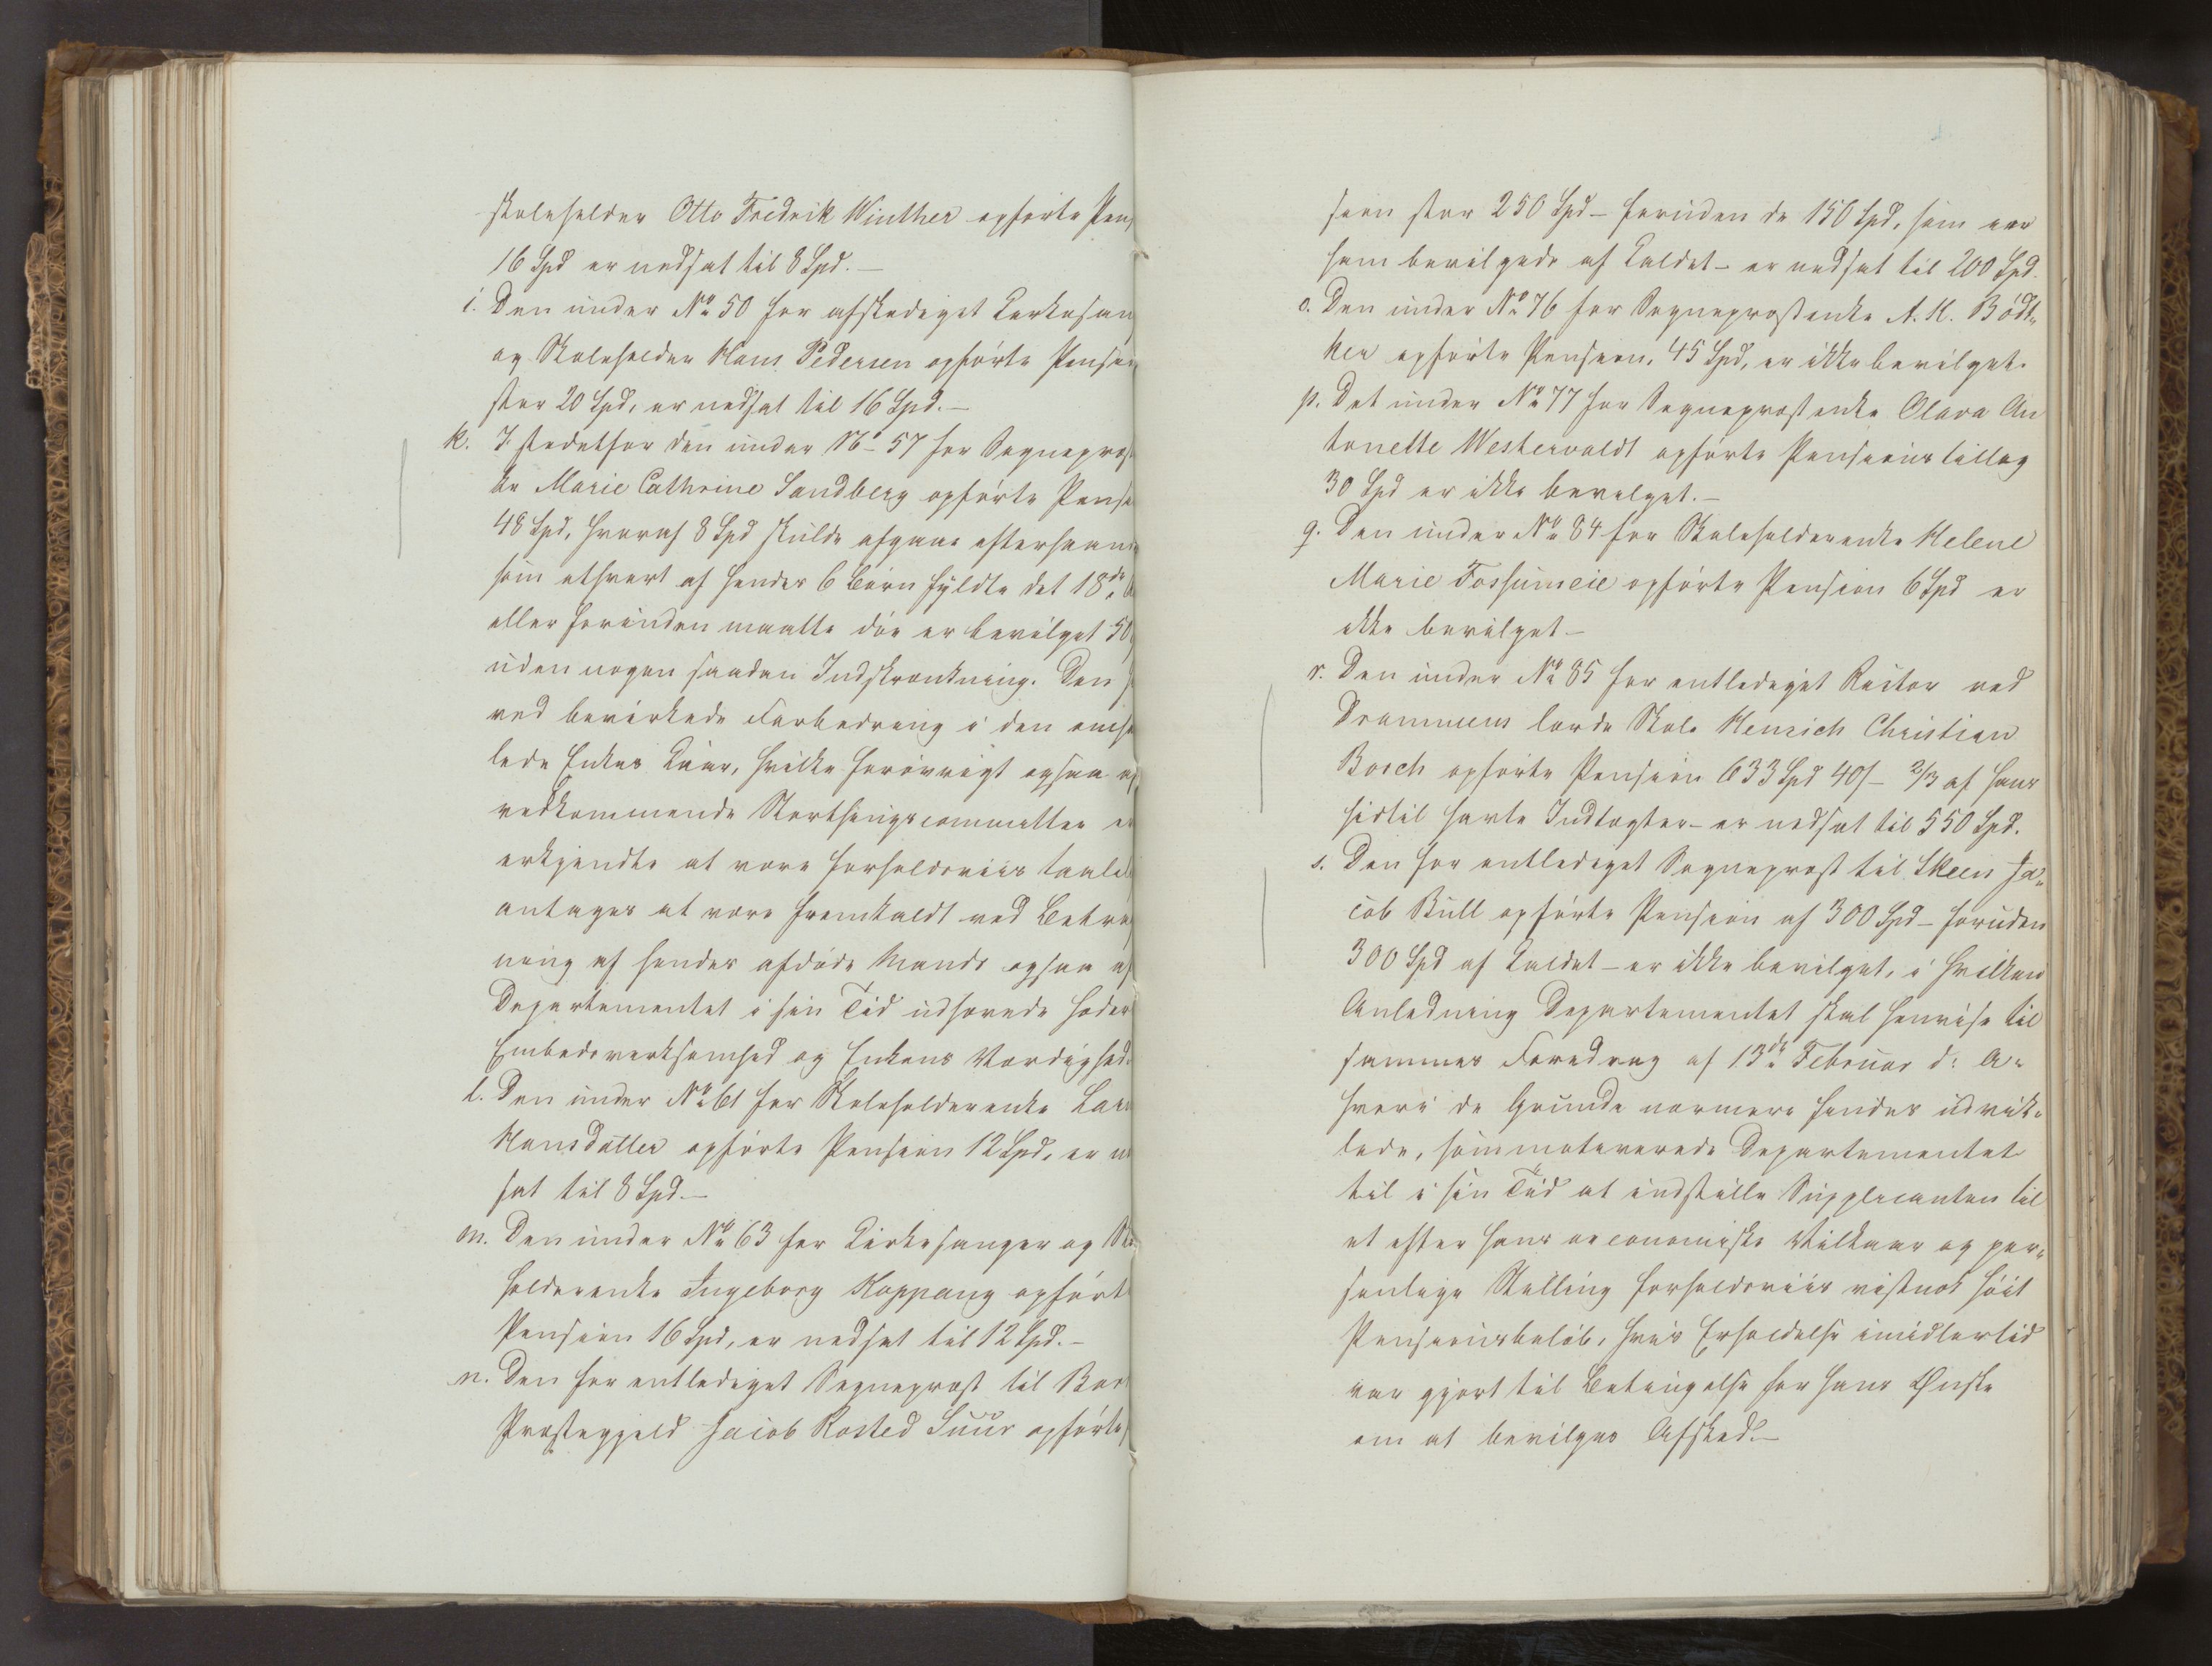 skoleholder Otto Fredrik Winther opførte Pen
16 Spd er nedsat til 8 Spd. —
i. Den under No 50 for afskediget Kirkesan
og Skoleholder Hans Pedersen opførte Pension
stor 20 Spd, er nedsat til 16 Spd. —
k. I stedetfor den under No 57 for Sognepræst
Marie Cathrine Sandberg opførte Pensi
48 Spd, hvoraf 8 Spd skulde afgaae efterhaanden
som ethvert af hendes 6 Børn fyldte det 18de
eller forinden maatte døe er bevilget 50
uden nogen saadan Indskrænkning. Den
ved bevirkede Forbedring i den omhand
lede Enkes Kaar, hvilke forøvrigt ogsaa af
vedkommende Storthingscommittee er
erkjendte at være forholdsviis taale
antages at være fremkaldt ved Betra
ning af hendes afdøde Mands ogsaa af
Departementet i sin Tid udhævede
Embedsvirksomhed og Enkens Værdighed.
l. Den under No 61 for Skoleholderenke
Hansdatter opførte Pension 12 Spd, er ned
sat til 8 Spd. —
m. Den under No 63 for Kirkesanger og Sko
holderenke Ingeborg Koppang opført
Pension 16 Spd, er nedsat til 12 Spd. —
n. Den for entlediget Sognepræst til
Præstegjeld Jacob Rosted Suur opførte
sion stor 250 Spd — foruden de 150 Spd, som ere
ham bevilgede af Kaldet — er nedsat til 200 Spd.
o. Den under No 76 for Sognepræstenke A. K. Bødt„
ker opførte Pension, 45 Spd, er ikke bevilget.
p. Det under No 77 for Sognepræstenke Olava An
tonette Westerwaldt opførte Pensionstillæg
30 Spd er ikke bevilget. —
q. Den under No 84 for Skoleholderenke Helene
Marie Fossumeie opførte Pension 6 Spd er
ikke bevilget —
r. Den under No 85 for entlediget Rector ved
Drammens lærde Skole Henrich Christian
Bosch opførte Pension 633 Spd 40 s — 2/3 af hans
hidtil havte Indtægter — er nedsat til 550 Spd.
s. Den for entlediget Sognepræst til Skeen Ja„
cob Bull opførte Pension af 300 Spd — foruden
300 Spd af Kaldet — er ikke bevilget, i hvilken
Anledning Departementet skal henvise til
sammes Foredrag af 13de Februar d: A:
hvori de Grunde nærmere findes udvik„
lede, som motiverede Departementet
til i sin Tid at indstille Supplicanten til
et efter hans oeconomiske Vilkaar og per„
sonlige Stilling forholdsviis vistnok høit
Pensionsbeløb, hvis Erholdelse imidlertid
var gjort til Betingelse for hans Ønske
om at bevilges Afsked. —